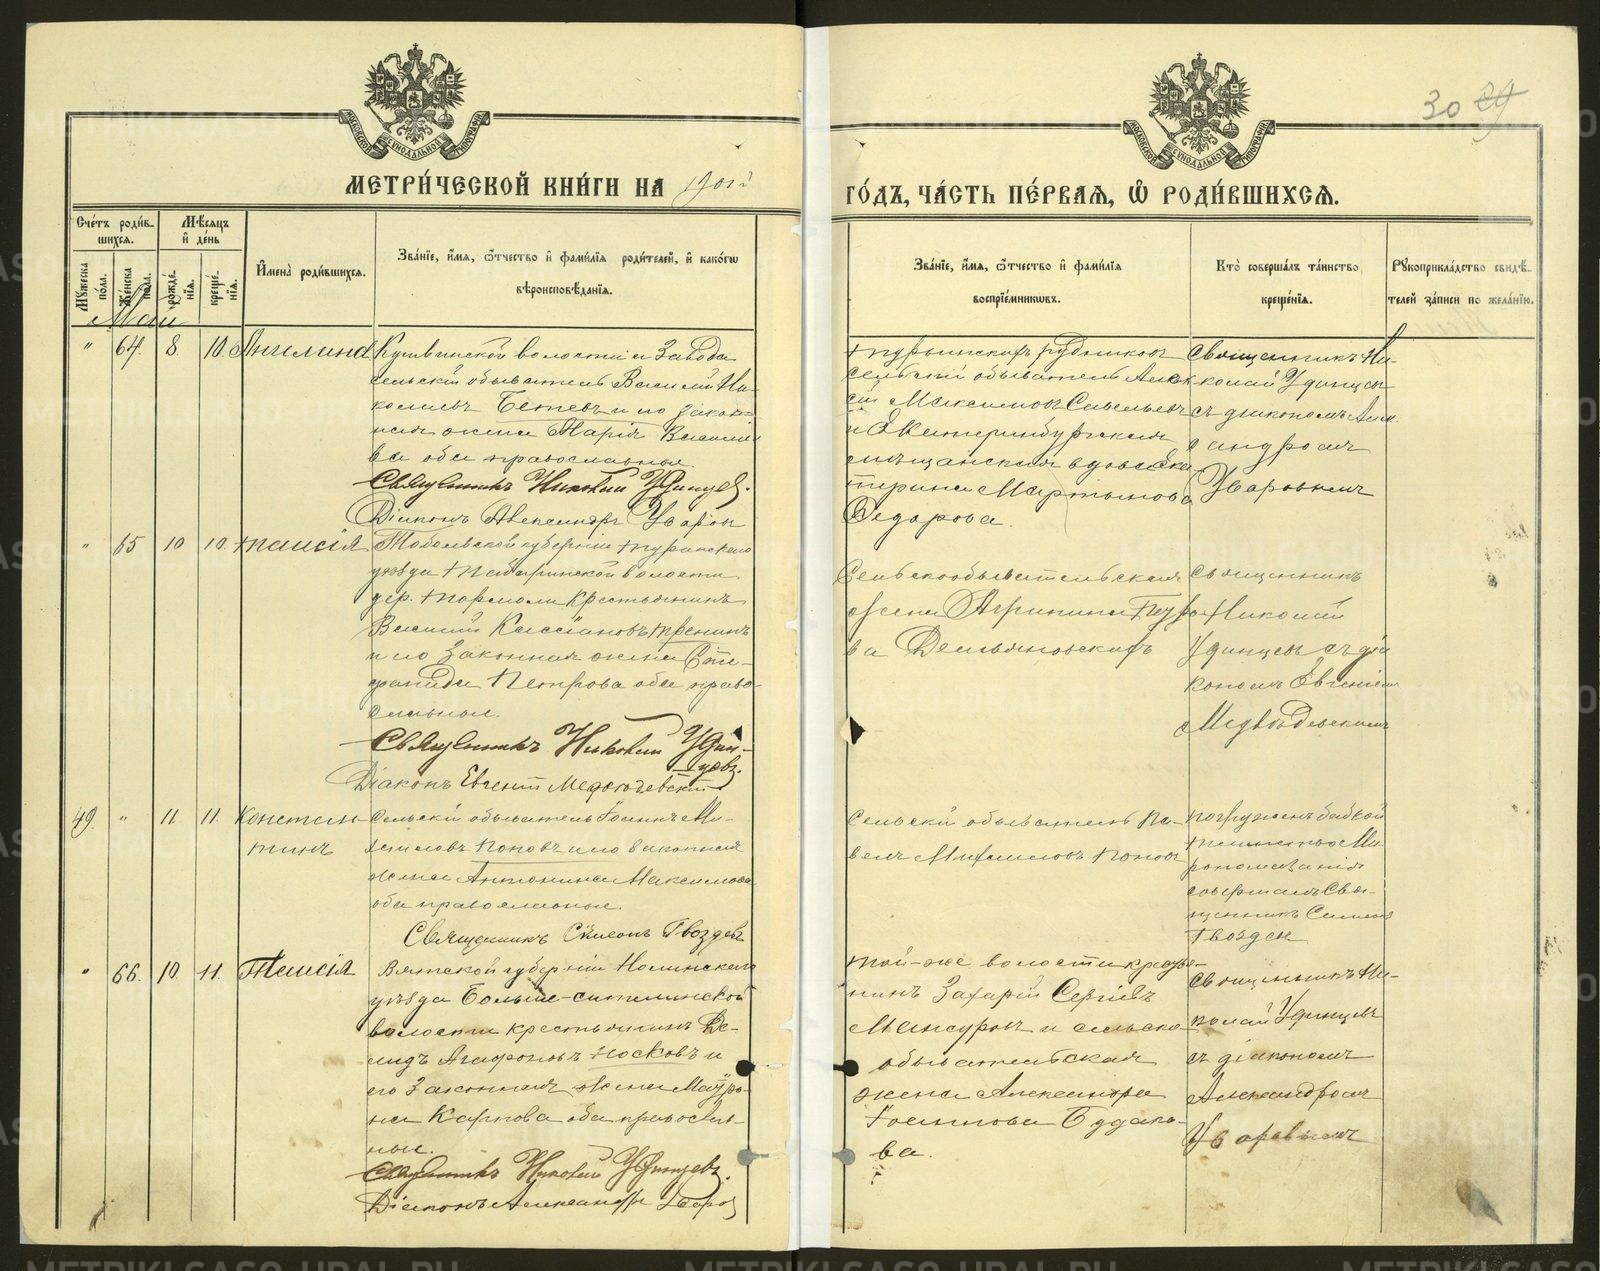 МОСКОВСКОЙ СѴНОДАЛЬНОЙ ТИПОГРАФІИ
МОСКОВСКОЙ СѴНОДАЛЬНОЙ ТИПОГРАФІИ
30 29
МЕТРИ́ЧЕСКОЙ КНИ́ГИ НА 1901й
ГО́ДЪ, ЧА́СТЬ ПЕ́РВАѦ, Ѡ҆ РОДИ́ВШИХСѦ.
Сче́тъ роди́в-
шихсѧ.
Мѣ́сѧцъ
и҆ де́нь
Мꙋ́жеска по́ла.
Же́нска по́ла.
рожде́-
нїѧ.
креще́-
нїѧ.
И҆мена̀ роди́вшихсѧ.
Зва́нїе, и҆́мѧ, ѻ҆́тчество и҆ фами́лїѧ роди́телей, и҆ како́гѡ
вѣроисповѣ́данїѧ.
Зва́нїе, и҆́мѧ, ѻ҆́тчество и҆ фами́лїѧ
воспрїе́мникѡвъ.
Кто̀ соверша́лъ та́инство
креще́нїѧ.
Рꙋкоприкла́дство свидѣ́-
телей за́писи по жела́нїю.
Май
" 64. 8. 10. Ангелина
Кушвинской волости и завода
сельскій обыватель Василій Ни-
колаевъ Бетевъ и его закон-
ная жена Марія Василье
ва оба православные.
Священникъ Николай Удинцев.
Діаконъ Александръ Уваров
Турьинскихъ рудниковъ
сельскій обыватель Алек
сій Максимовъ Савельевъ
и Екатеринбургская
мѣщанская вдова Ека
терина Мартынова
Федорова.
Священникъ Ни-
колай Удинцевъ
съ діакономъ Алек
сандромъ
Уваровымъ
" 65 10 10. Таисія
Тобольской губерніи Туринскаго
уѣзда волости
дер. крестьянинъ
Василій Кассіановъ
и его законная жена Сте-
фанида Петрова оба право-
славные.
Священникъ Николай Удин-
цовъ.
Діаконъ Евгеній Медвѣдевскій
Сельскообывательская
жена Агрипина
ва Демьяновскихъ
Священникъ
Николай
Удинцевъ съ діа
кономъ Евгеніемъ
Медвѣдевскимъ
49. " 11. 11. Констан-
тинъ
Сельскій обыватель Іоаннъ Ми-
хаиловъ Поповъ и его законная
жена Антонина Максимова
оба православные.
Священникъ Сѵмеонъ Гвоздевъ
Сельскій обыватель Па-
велъ Михаиловъ Поповъ
Погруженъ бабкой
таинство Ми-
ропомазанія
совершалъ Свя-
щенникъ Симеонъ
Гвоздевъ
" 66. 10. 11. Таисія
Вятской губерніи Нолинскаго
уѣзда Больше-ситминской
волости крестьянинъ Де-
мидъ Агафоновъ Носковъ и
его законная жена Мавро-
на Карпова оба православ-
ные.
Священникъ Николай Удинцевъ.
Діаконъ Александръ Уваров
Той-же волости кресть-
нинъ Захарій Сергіевъ
Мансуровъ и сельско
обывательская
жена Александра
Іоаннова Будако-
ва.
Священникъ Ни-
колай Удинцевъ
съ діакономъ
Александромъ
Уваровымъ
METRIKI.GASO-URAL.RU